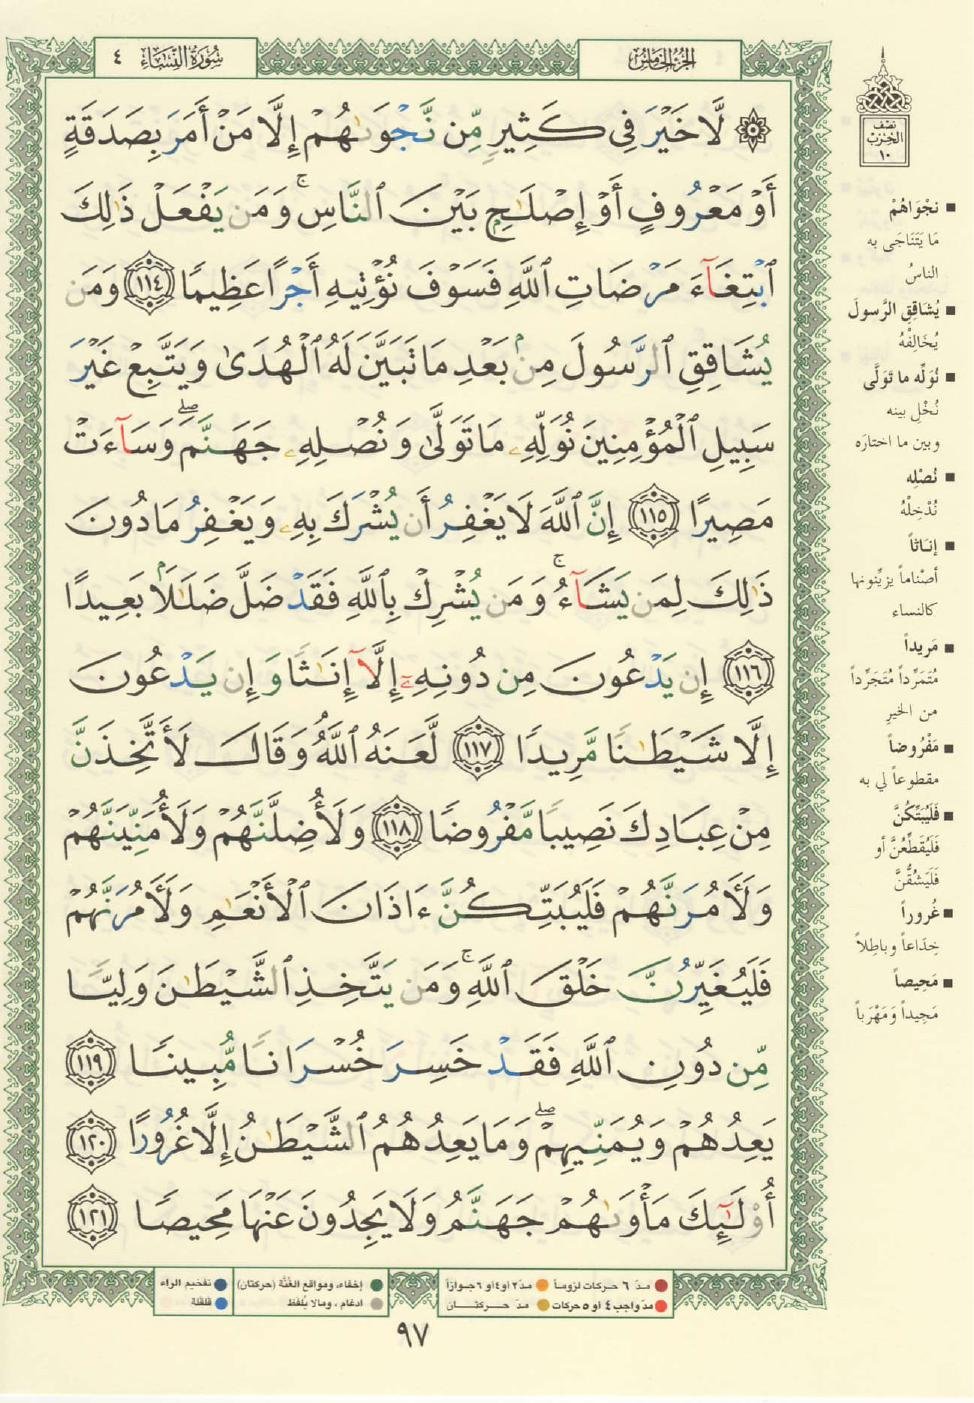 سُورَةُ النِّسَاءِ ٤
الجُزْءُ الخَامِسُ
۞ لَّا خَيْرَ فِى كَثِيرٍ مِّن نَّجْوَىٰهُمْ إِلَّا مَنْ أَمَرَ بِصَدَقَةٍ
أَوْ مَعْرُوفٍ أَوْ إِصْلَـٰحٍۭ بَيْنَ ٱلنَّاسِ ۚ وَمَن يَفْعَلْ ذَٰلِكَ
ٱبْتِغَآءَ مَرْضَاتِ ٱللَّهِ فَسَوْفَ نُؤْتِيهِ أَجْرًا عَظِيمًا ١١٤ وَمَن
يُشَاقِقِ ٱلرَّسُولَ مِنۢ بَعْدِ مَا تَبَيَّنَ لَهُ ٱلْهُدَىٰ وَيَتَّبِعْ غَيْرَ
سَبِيلِ ٱلْمُؤْمِنِينَ نُوَلِّهِۦ مَا تَوَلَّىٰ وَنُصْلِهِۦ جَهَنَّمَ ۖ وَسَآءَتْ
مَصِيرًا ١١٥ إِنَّ ٱللَّهَ لَا يَغْفِرُ أَن يُشْرَكَ بِهِۦ وَيَغْفِرُ مَا دُونَ
ذَٰلِكَ لِمَن يَشَآءُ ۚ وَمَن يُشْرِكْ بِٱللَّهِ فَقَدْ ضَلَّ ضَلَـٰلًۢا بَعِيدًا
١١٦ إِن يَدْعُونَ مِن دُونِهِۦٓ إِلَّآ إِنَـٰثًا وَإِن يَدْعُونَ
إِلَّا شَيْطَـٰنًا مَّرِيدًا ١١٧ لَّعَنَهُ ٱللَّهُ وَقَالَ لَأَتَّخِذَنَّ
مِنْ عِبَادِكَ نَصِيبًا مَّفْرُوضًا ١١٨ وَلَأُضِلَّنَّهُمْ وَلَأُمَنِّيَنَّهُمْ
وَلَـَٔامُرَنَّهُمْ فَلَيُبَتِّكُنَّ ءَاذَانَ ٱلْأَنْعَـٰمِ وَلَـَٔامُرَنَّهُمْ
فَلَيُغَيِّرُنَّ خَلْقَ ٱللَّهِ ۚ وَمَن يَتَّخِذِ ٱلشَّيْطَـٰنَ وَلِيًّا
مِّن دُونِ ٱللَّهِ فَقَدْ خَسِرَ خُسْرَانًا مُّبِينًا ١١٩
يَعِدُهُمْ وَيُمَنِّيهِمْ ۖ وَمَا يَعِدُهُمُ ٱلشَّيْطَـٰنُ إِلَّا غُرُورًا ١٢٠
أُو۟لَـٰٓئِكَ مَأْوَىٰهُمْ جَهَنَّمُ وَلَا يَجِدُونَ عَنْهَا مَحِيصًا ١٢١
نصف
الحزب
١٠
■ نَجْوَاهُمْ
مَا يَتَنَاجَى به
الناسُ
■ يُشَاقِقِ الرَّسولَ
يُخَالِفْهُ
■ نُوَلِّه ما تَوَلَّى
نُخْلِ بينه
وبين ما اختارَه
■ نُصْلِه
نُدْخِلْهُ
■ إنَاثاً
أصْناماً يزيِّنونها
كالنساء
■ مَريداً
مُتَمَرِّداً مُتَجَرِّداً
من الخيرِ
■ مَفْرُوضاً
مقطوعاً لي به
■ فَلَيُبَتِّكُنَّ
فَلَيُقَطِّعُنَّ أو
فَلَيَشُقُّنَّ
■ غُروراً
خِدَاعاً وباطِلاً
■ مَحِيصاً
مَحِيداً وَمَهْرَباً
مدّ ٦ حركات لزوماً
مدّ ٢ أو ٤ أو ٦ جوازاً
مدّ واجب ٤ أو ٥ حركات
مدّ حركتـان
إخفاء، ومواقع الغُنَّة (حركتان)
ادغام، ومالا يُلفَظ
تفخيم الراء
قلقلة
٩٧